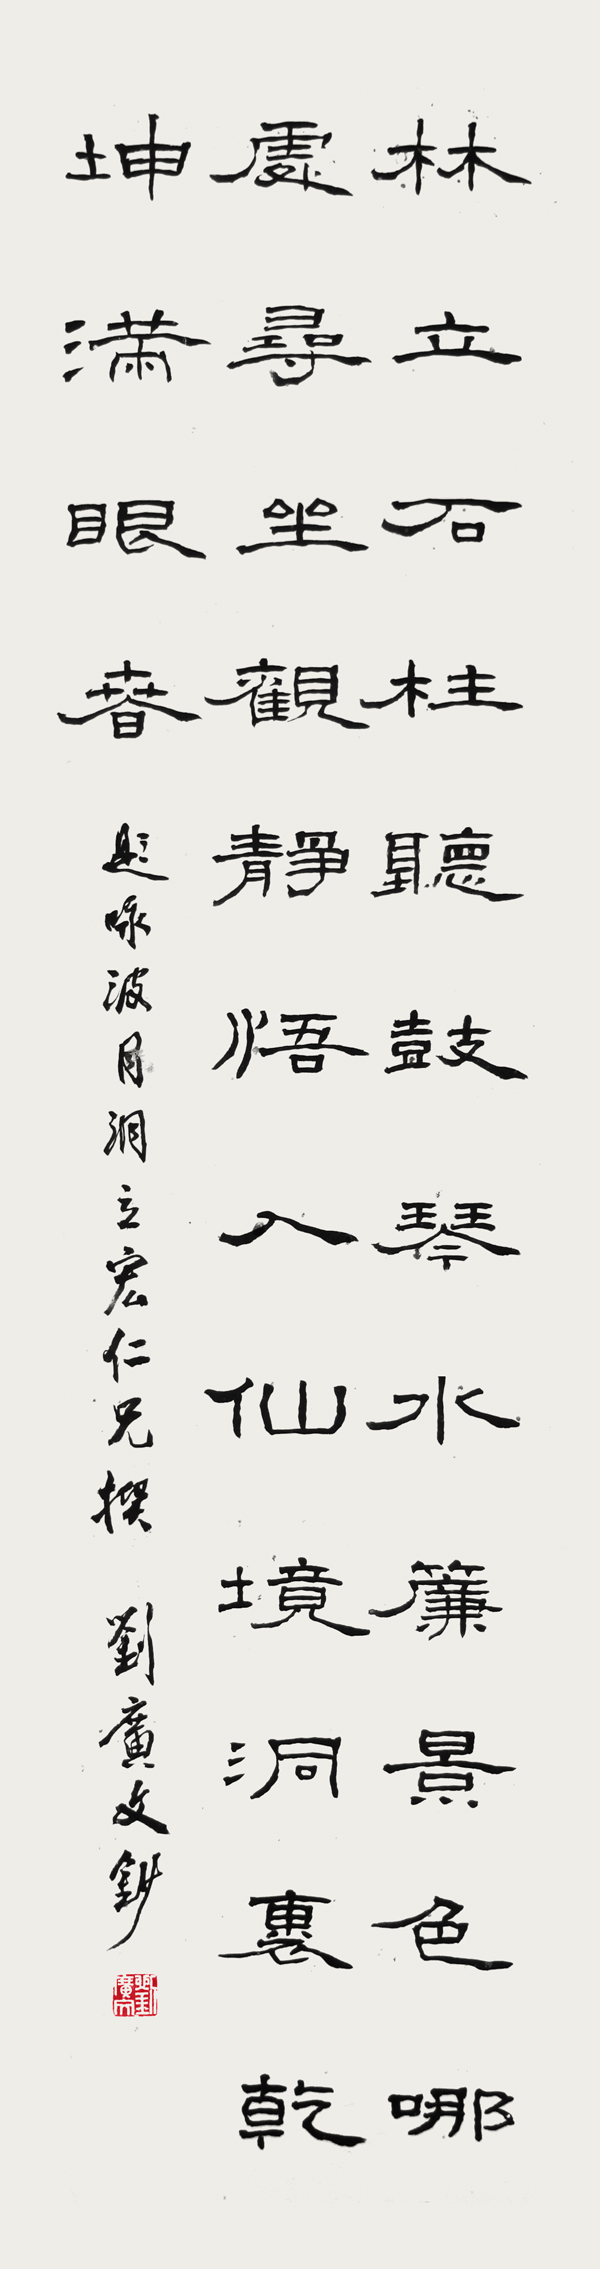 林立石柱聽鼓琴水簾景色哪
處尋坐觀靜悟入仙境洞裏乾
坤滿眼春
題咏波月洞立宏仁兄撰 劉廣文鈔
劉廣文